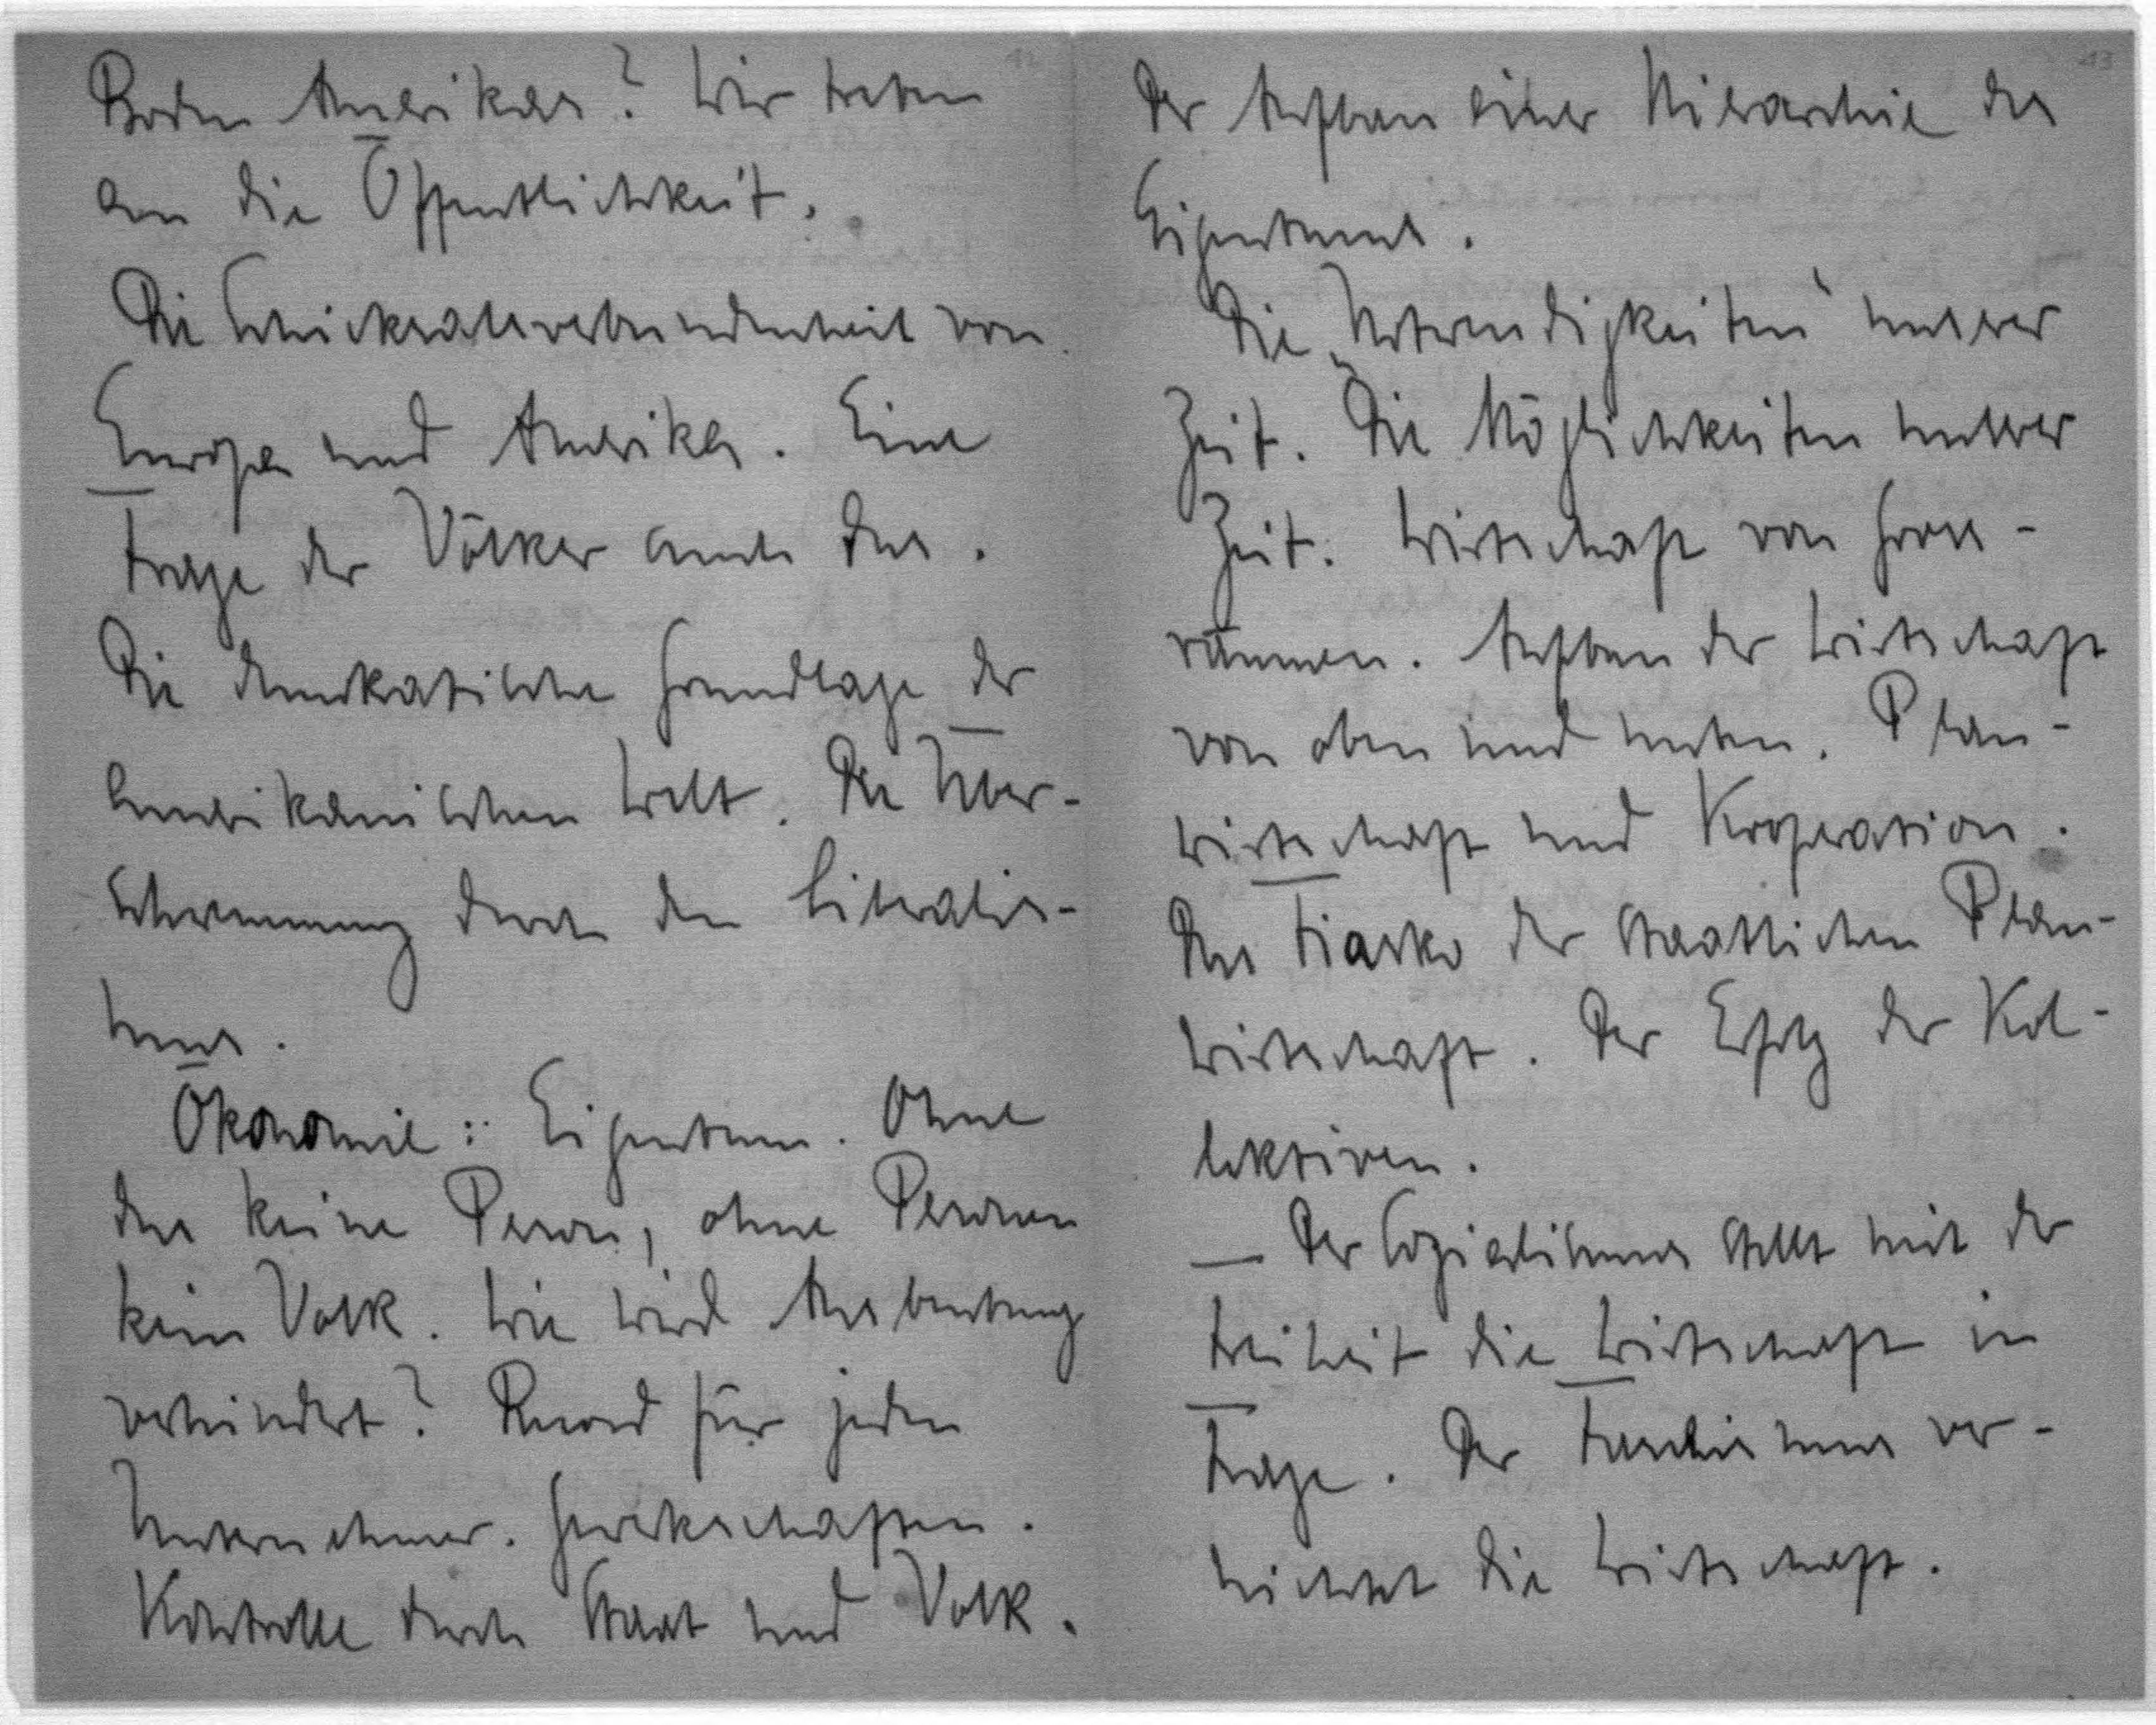 12
Boden Amerikas? Wir treten
an die Öffentlichkeit.
Die Schicksalsverbundenheit von
Europa und Amerika. Eine
Frage der Völker auch das.
Die demokratische Grundlage der
amerikanischen Welt. Die Über-
schwemmung durch den Liberalis-
mus.
Ökonomie: Eigentum. Ohne
das keine Person, ohne Personen
kein Volk. Wie wird Ausbeutung
verhindert? Rekord für jeden
Unternehmer. Gewerkschaften.
Kontrolle durch Staat und Volk.
13
Der Aufbau einer Hierarchie des
Eigentums.
Die „Notwendigkeiten" unserer
Zeit. Die Möglichkeiten unserer
Zeit. Wirtschaft von Gross-
räumen. Aufbau der Wirtschaft
von oben und unten. Plan-
wirtschaft und Kooperation.
Das Fiasko der staatlichen Plan-
wirtschaft. Der Erfolg der Kol-
lektiven.
— Der Sozialismus stellt mit der
Freiheit die Wirtschaft in
Frage. Der Faschismus ver-
nichtet die Wirtschaft.